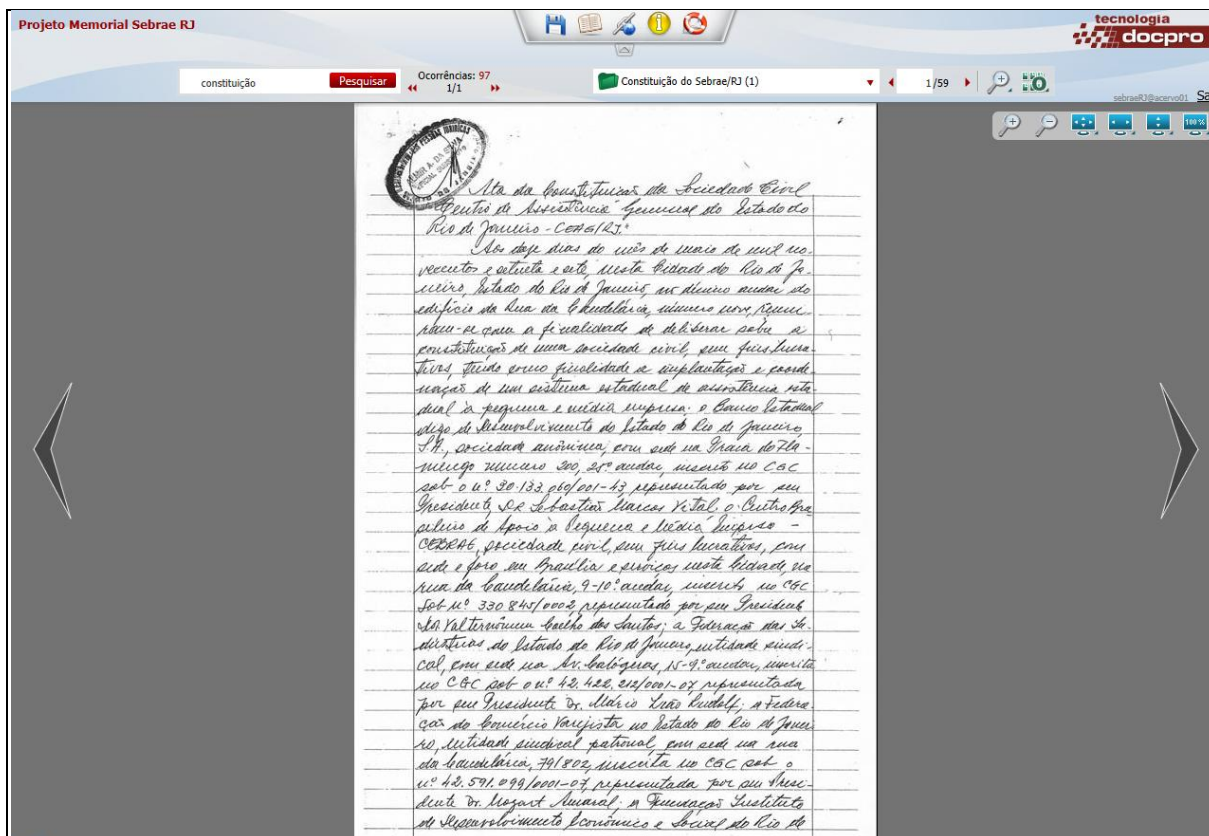 Projeto Memorial Sebrae RJ
tecnologia
docpro
constituição
Pesquisar
Ocorrências: 97
1/1
Constituição do Sebrae/RJ (1)
1/59
sebraeRJ@acervo01 Sa
100%
Ata da Constituição da Sociedade Civil
Centro de Assistência Gerencial do Estado do
Rio de Janeiro - CEAG/RJ."
Aos doze dias do mês de maio de mil no-
vecentos e setenta e sete, nesta Cidade do Rio de Ja-
neiro, Estado do Rio de Janeiro, no décimo andar do
edifício da Rua da Candelária, número nove, reuni
ram-se com a finalidade de deliberar sobre a
constituição de uma sociedade civil, sem fins lucra-
tivos, tendo como finalidade a implantação e coorde-
nação de um sistema estadual de assistência esta-
dual à pequena e média empresa: o Banco Estadual
digo de Desenvolvimento do Estado do Rio de Janeiro
S.A., sociedade anônima, com sede na Praia do Fla-
mengo número 200, 25º andar, inscrito no CGC
sob o nº 30.133.060/001-43, representado por seu
Presidente, DR Sebastião Marcos Vital, o Centro Bra
sileiro de Apoio à Pequena e Média Empresa -
CEBRAE, sociedade civil, sem fins lucrativos, com
sede e foro em Brasília e serviços nesta Cidade, na
rua da Candelária, 9-10º andar, inscrito no CGC
sob nº 330845/0002, representado por seu Presidente
Coelho dos Santos; a Federação das In-
dústrias do Estado do Rio de Janeiro, entidade sindi-
cal, com sede na Av. Calógeras, 15-9º andar, inscrita
no CGC sob o nº 42.422.212/0001-07 representada
por seu Presidente Dr. Mário Ludolf; a Federa
ção do Comércio Varejista no Estado do Rio de Janei
ro, entidade sindical patronal, com sede na rua
da Candelária, 79/802, inscrita no CGC sob o
nº 42.591.099/0001-07, representada por seu Presi-
dente Dr. Mozart Amaral; a Fundação Instituto
de Desenvolvimento Econômico e Social do Rio de